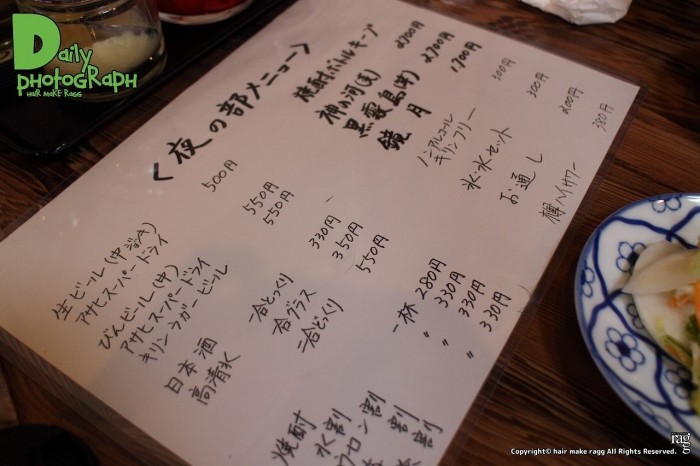 Daily
PHOTOGRAPH
HAIR MAKE RAGG
<夜の部メニュー>
生ビール(中ジョッキ) 500円
アサヒスーパードライ
びんビール(中)
アサヒスーパードライ 550円
キリンラガービール 550円
日本酒
高清水
一合とっくり 330円
一合グラス 350円
二合とっくり 550円
焼酎 一杯 280円
水割 〃 330円
ウーロン割 〃 330円
割 330円
割
焼酎ボトルキープ
神の河(麦) 2700円
黒霧島(芋) 2700円
鏡月 1700円
ノンアルコール
キリンフリー 300円
氷・水セット 300円
お通し 200円
樽ハイサワー 380円
rag
g
Copyright© hair make ragg All Rights Reserved.